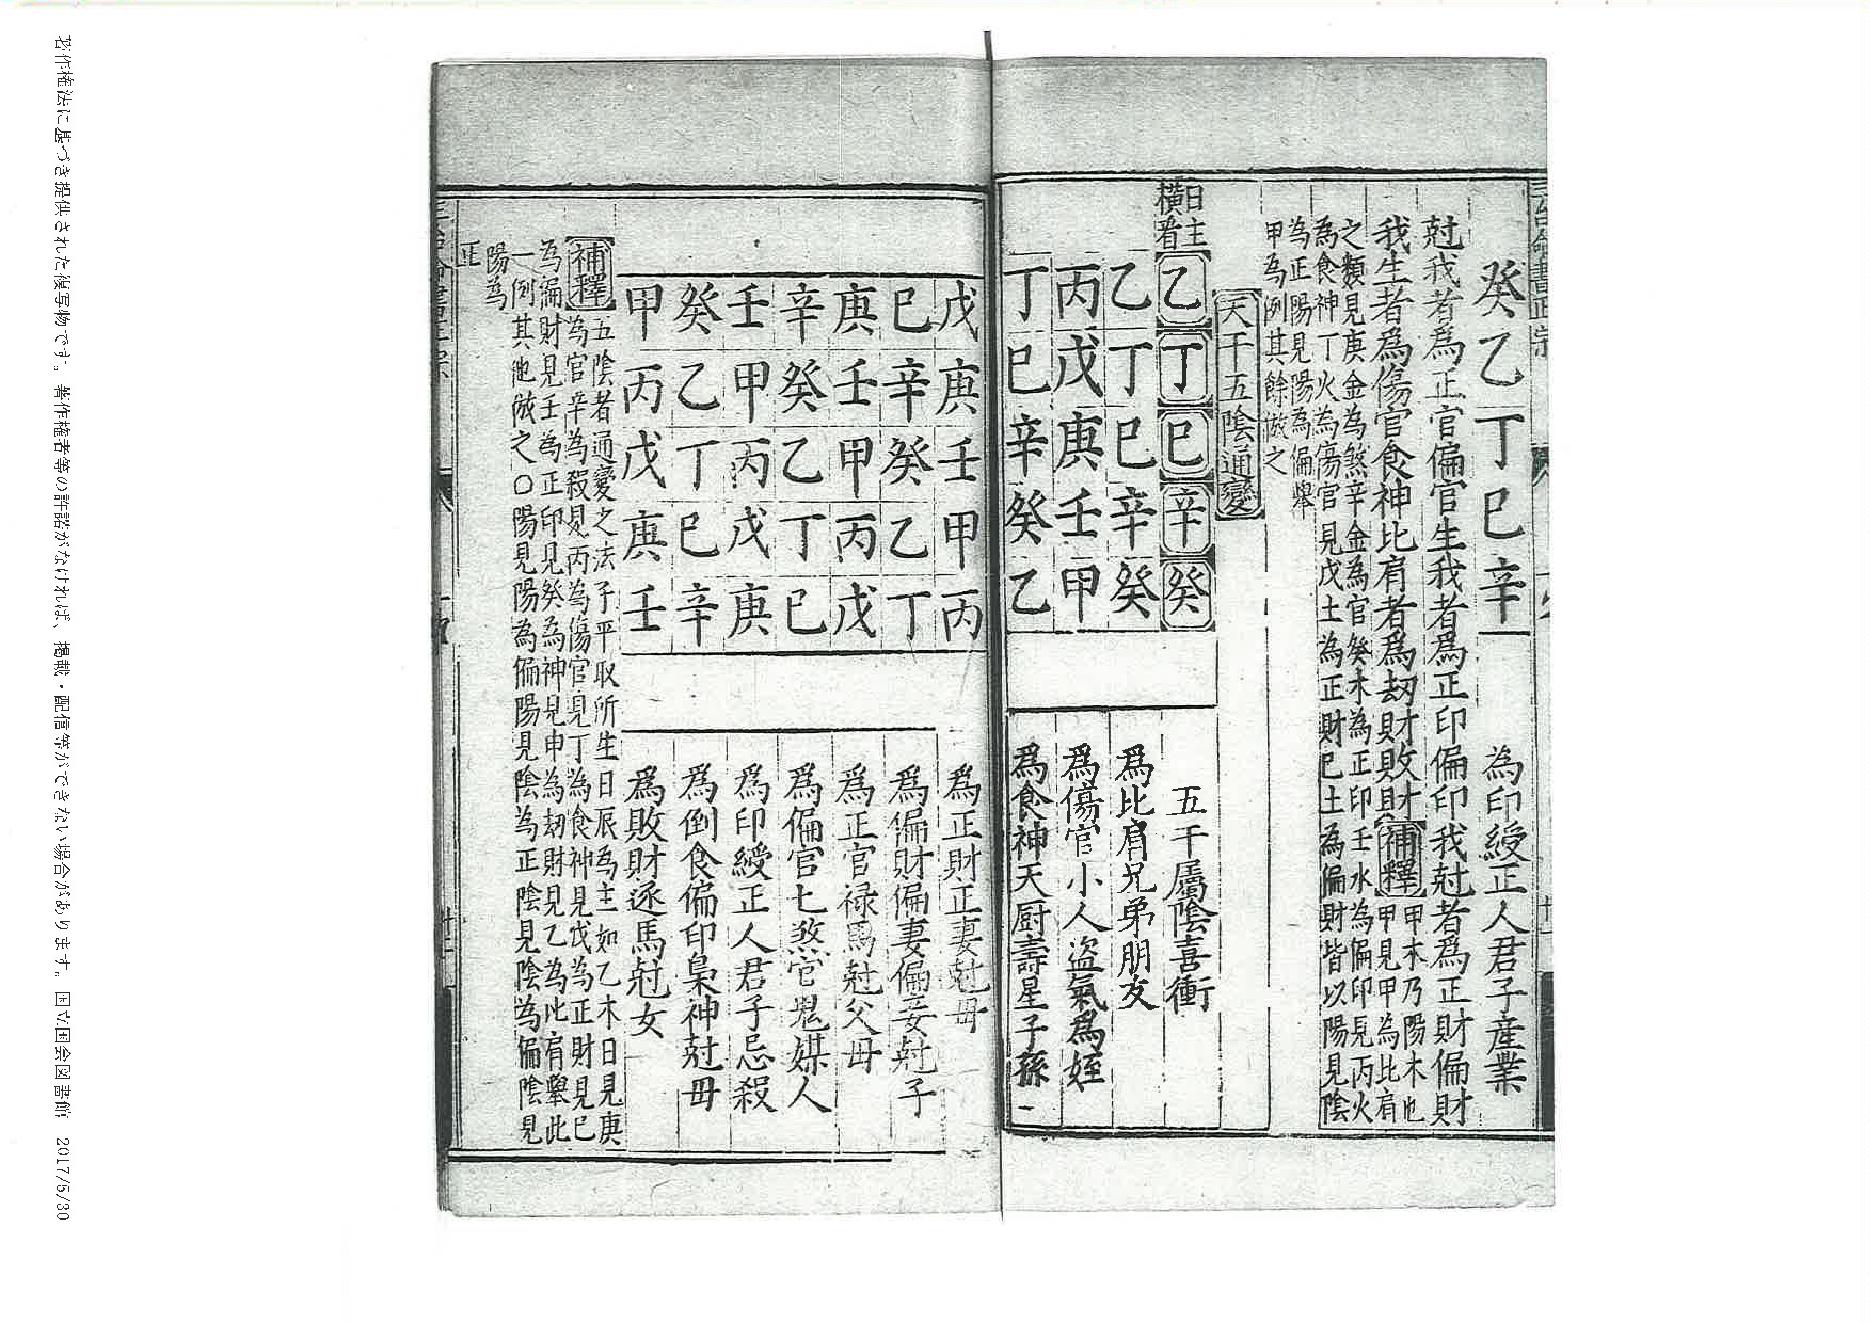 癸乙丁巳辛　為印綬正人君子産業
尅我者爲正官偏官生我者爲正印偏印我尅者爲正財偏財
我生者爲傷官食神比肩者爲刼財敗財補釋甲木乃陽木也
甲見甲為比肩
之類見庚金為煞辛金為官癸木為正印壬水為偏印見丙火
為食神丁火為傷官見戊土為正財巳土為偏財皆以陽見陰
為正陽見陽為偏舉
甲為例其餘倣之
天干五陰通變
日主
横看
乙丁巳辛癸　五干屬陰喜衝
乙丁巳辛癸　爲比肩兄弟朋友
丙戊庚壬甲　爲傷官小人盗氣爲姪
丁巳辛癸乙　爲食神天厨壽星子孫
戊庚壬甲丙　爲正財正妻尅母
巳辛癸乙丁　爲偏財偏妻偏妾尅子
庚壬甲丙戊　爲正官禄馬尅父母
辛癸乙丁巳　爲偏官七煞官鬼媒人
壬甲丙戊庚　爲印綬正人君子忌殺
癸乙丁巳辛　爲倒食偏印梟神尅母
甲丙戊庚壬　爲敗財逐馬尅女
補釋五陰者通變之法子平取所生日辰為主如乙木日見庚
為官辛為殺見丙為傷官見丁為食神見戊為正財見巳
為偏財見壬為正印見癸為神見申為刼財見乙為比肩舉此
一例其他倣之〇陽見陽為偏陽見陰為正陰見陰為偏陰見
陽為
正
著作権法に基づき提供された複写物です。著作権者等の許諾がなければ、掲載・配信等ができない場合があります。国立国会図書館　2017/5/30